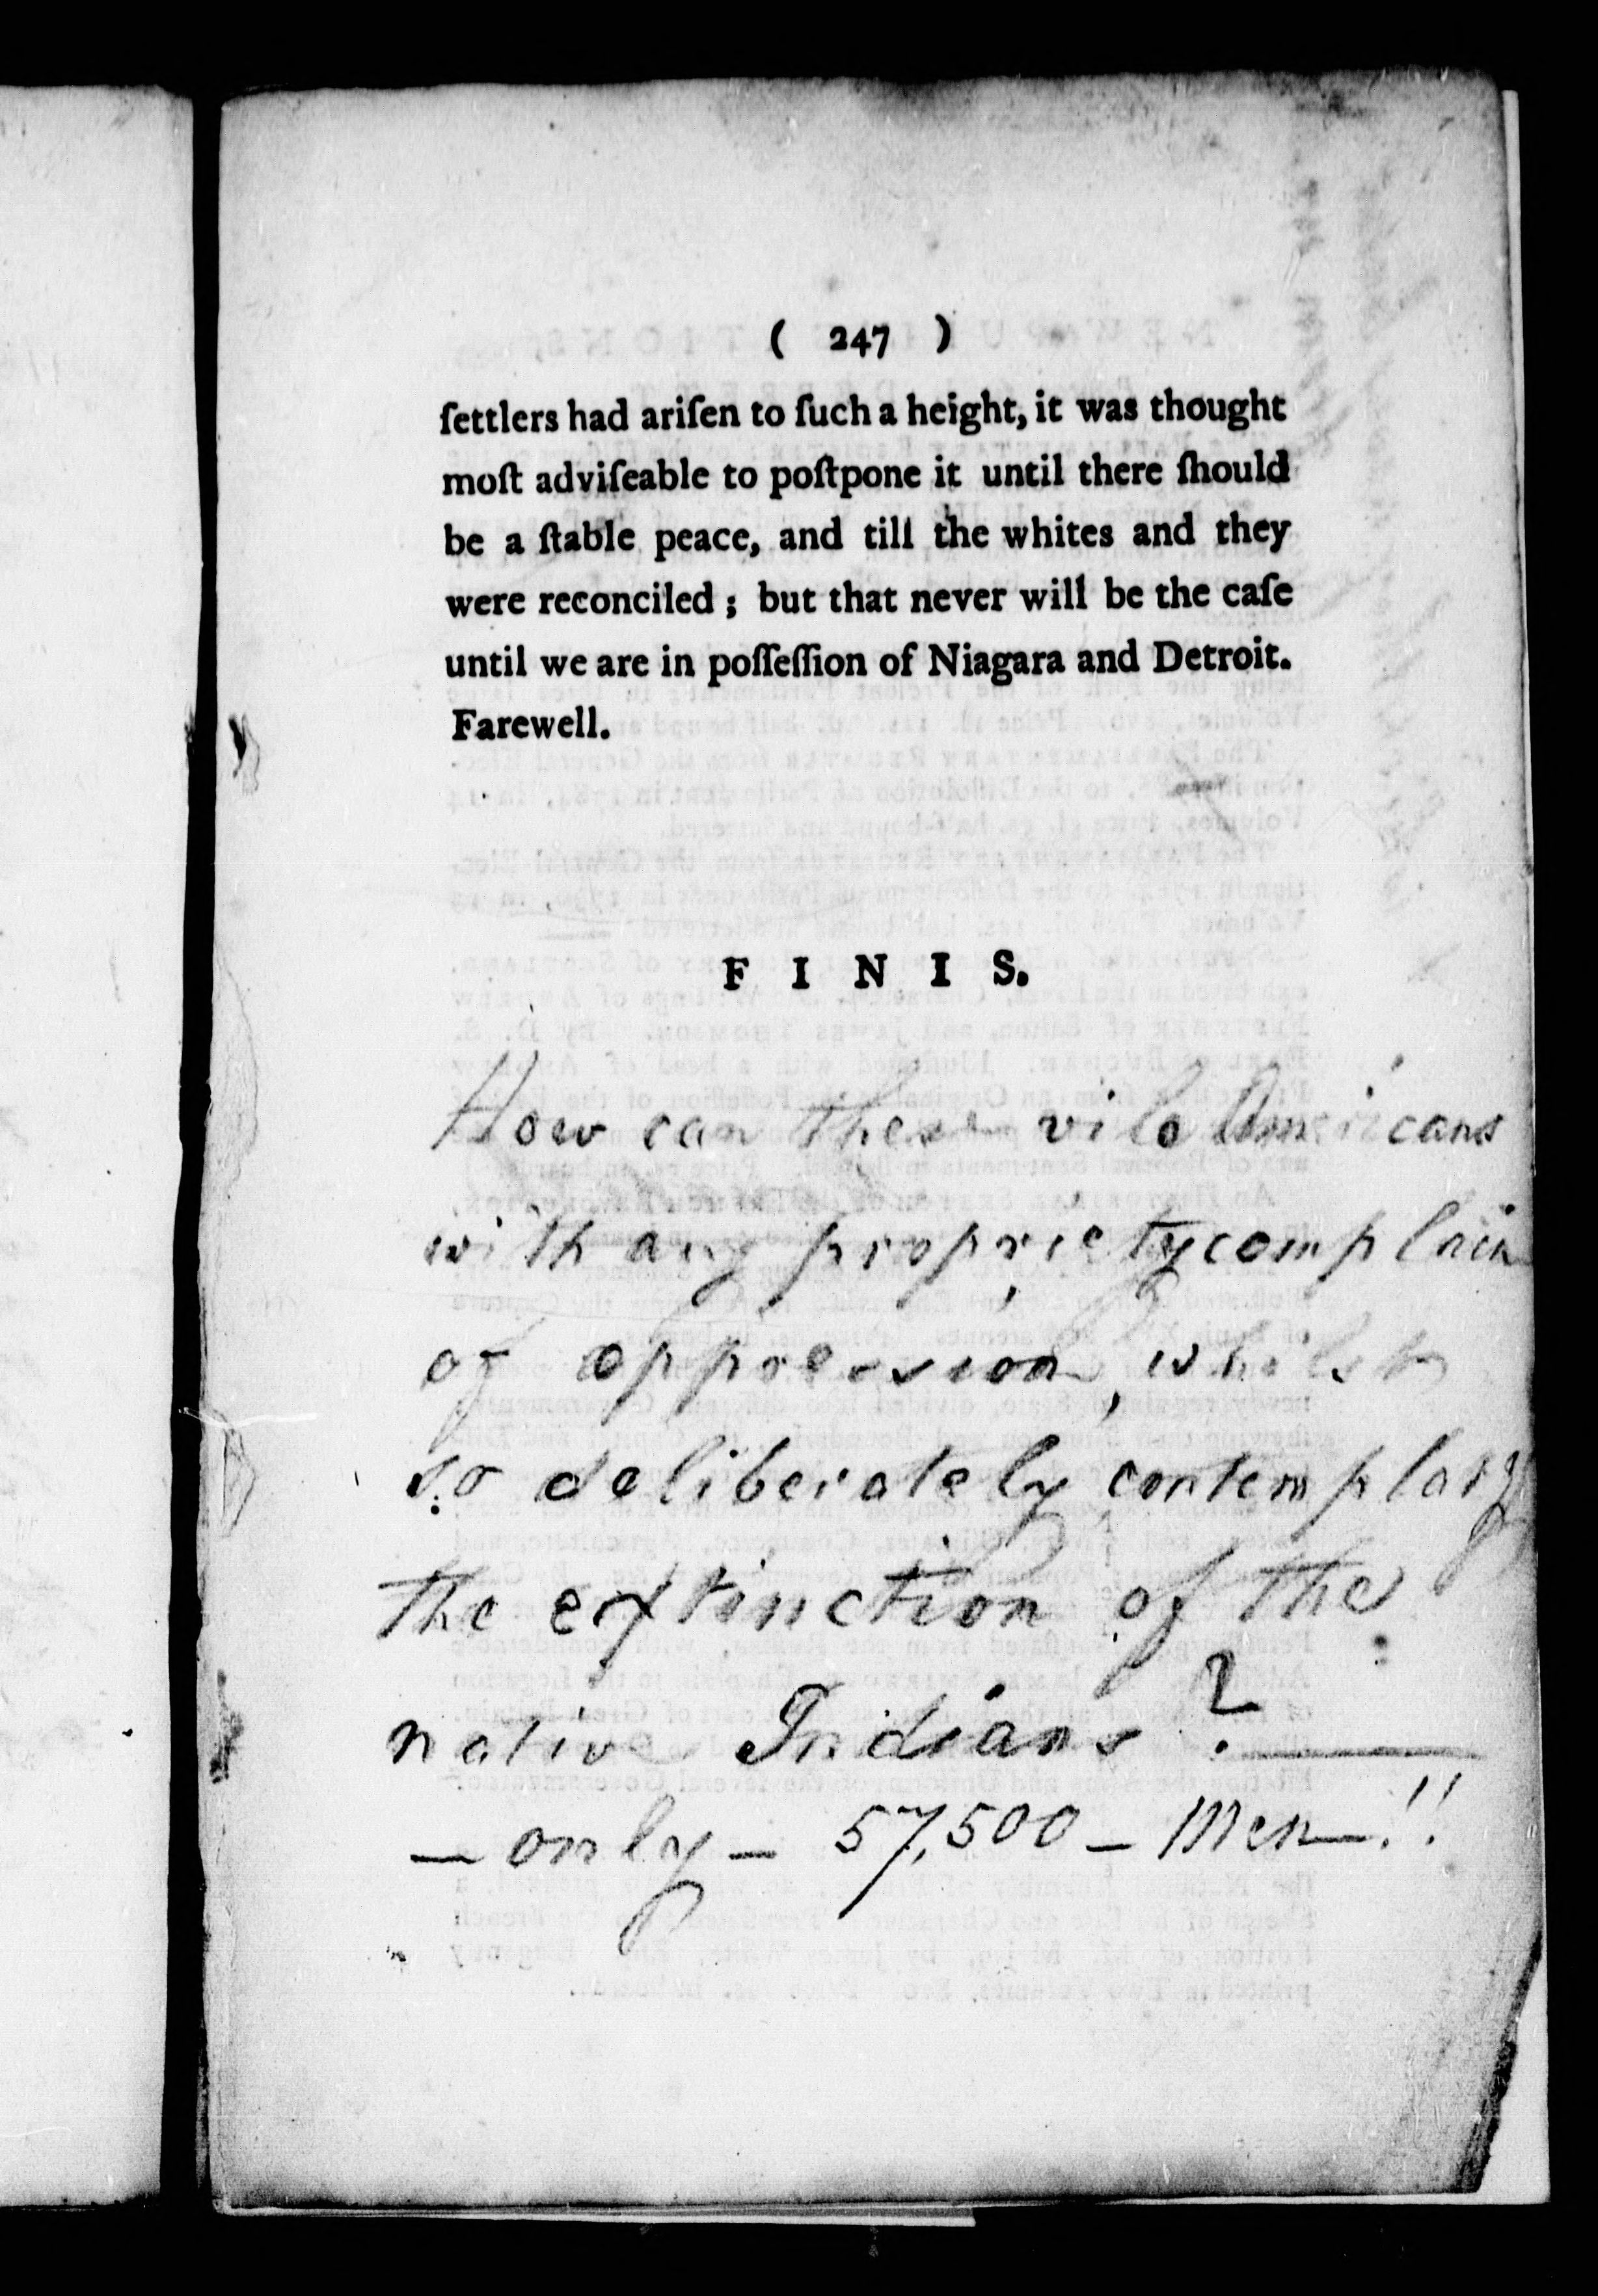 ( 247 )
ſettlers had ariſen to ſuch a height, it was thought
moſt adviſeable to poſtpone it until there ſhould
be a ſtable peace, and till the whites and they
were reconciled; but that never will be the caſe
until we are in poſſeſſion of Niagara and Detroit.
Farewell.
F I N I S.
How can these vile Americans
with any propriety complain
of oppression, whilst
so deliberately contemplatg
the extinction of the
native Indians?
— only — 57,500 — Men —!!